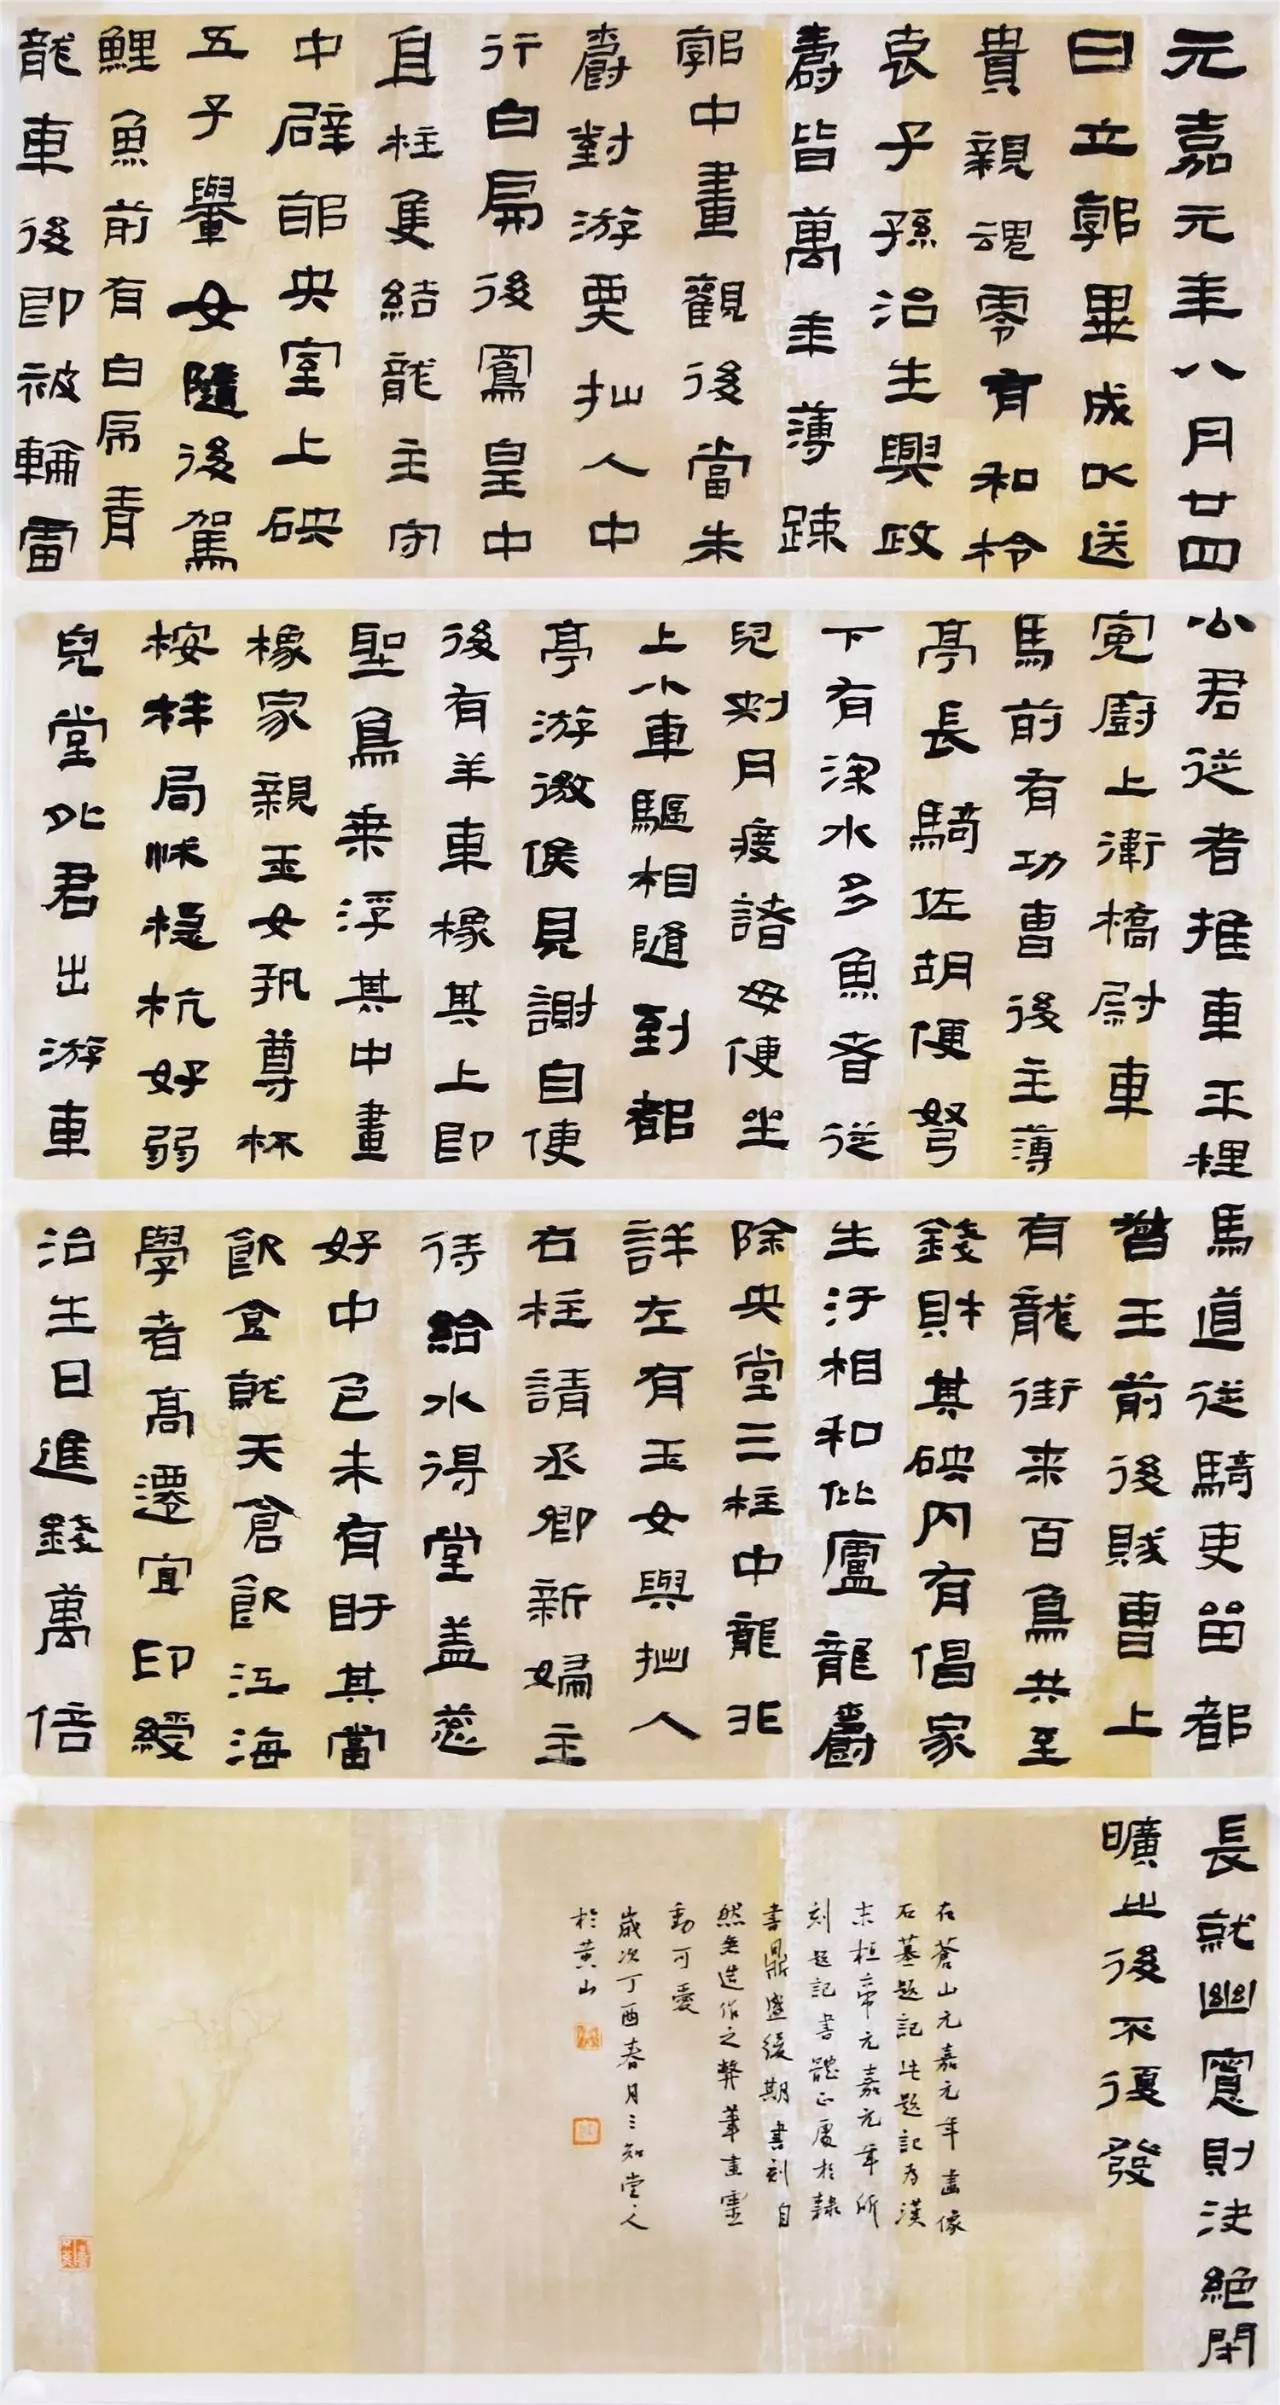 元嘉元年八月廿四
日立郭畢成以送
貴親魂零有和柃
哀子孫治生興政
壽皆萬年薄踈
郭中畫觀後當朱
爵對游㷱拙人中
行白扇後鳳皇中
直柱隻結龍主守
中辟邪央室上硤
五子轝女隨後駕
鯉魚前有白帍青
龍車後即被輪雷
公君從者推車平理
冤廚上衛橋尉車
馬前有功曹後主薄
亭長騎佐胡便弩
下有深水多魚者從
兒刾月疲諸母便坐
上小車驅相隨到都
亭游徼候見謝自便
後有羊車橡其上即
聖鳥乘浮其中畫
橡家親玉女執尊杯
桉柈局㭐穩杭好弱
兒堂外君出游車
馬道從騎吏留都
督王前後賊曹上
有龍銜来百鳥共至
錢財其硤內有倡家
生汙相和偕廬龍爵
除央堂三柱中龍非
詳左有玉女與拙人
右柱請丞卿新婦主
待給水得堂盖蔥
好中瓜未有盱其當
飲食就天倉飲江海
學者高遷宜印綬
治生日進錢萬倍
長就幽寘則決絕閉
曠之後不復發
右蒼山元嘉元年畫像
石墓題記此題記為漢
末桓帝元嘉元年所
刻題記書體正處於隸
書鼎盛後期書刻自
然無造作之弊筆畫靈
動可愛
歲次丁酉春月三知堂人
於黄山